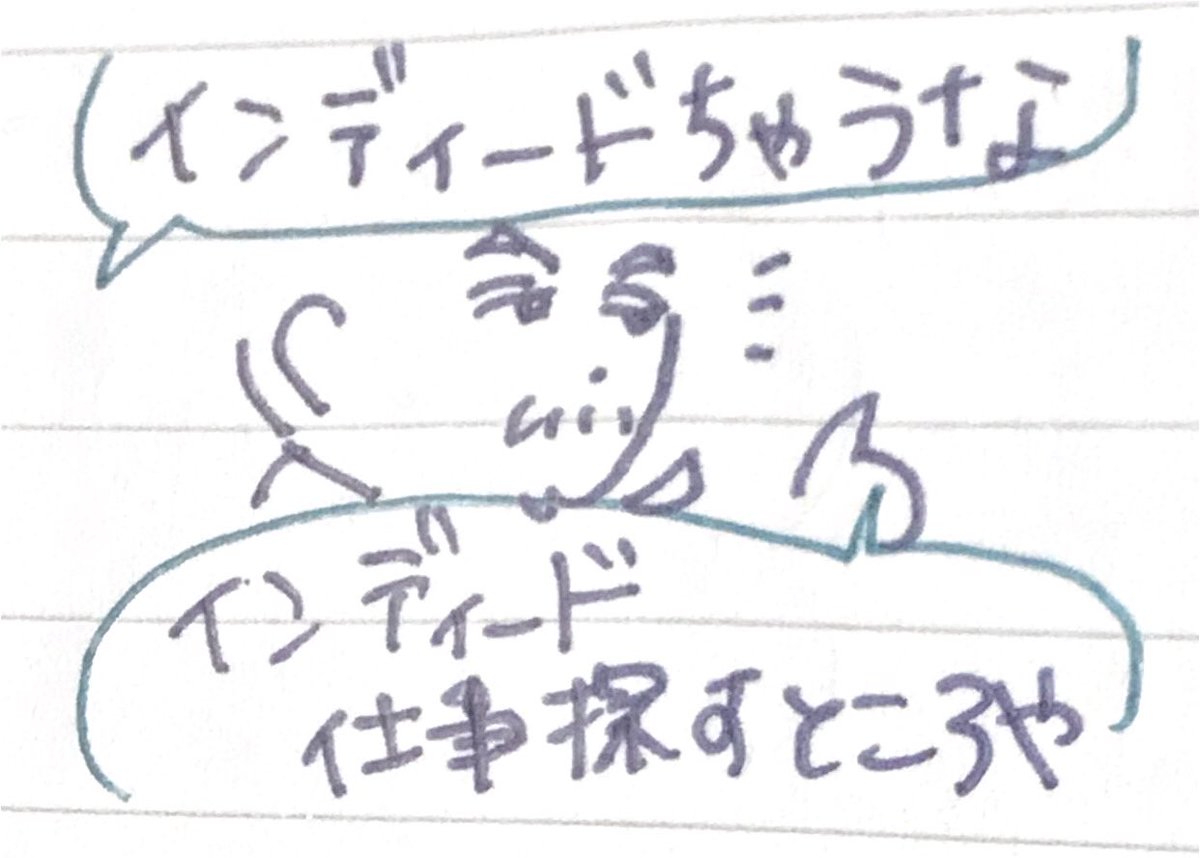 インディードちゃうな
インディード
仕事探すところや